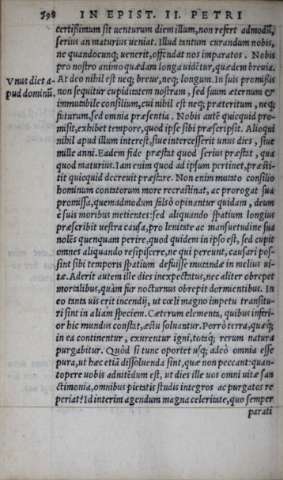 398 IN EPIST. II. PETRI
certissimum sit uenturum diem illum, non refert admodũ,
serius an maturius ueniat. Illud tantum curandum nobis,
ne quandocunq; uenerit, offendat nos imparatos. Nobis
pro nostro animo quædam longa uidẽtur, quædem breuia.
Vnus dies a-
pud dominũ.
At deo nihil est neq; breue, neq; longum. In suis promissis
non sequitur cupiditatem nostram, sed suum æternum &
immutibile consilium, cui nihil est neq; præteritum, neq;
futurum, sed omnia præsentia. Nobis autẽ quicquid pro-
misit, exhibet tempore, quod ipse sibi præscripsit. Alioqui
nihil apud illum interest, siue intercesserit unus dies, siue
mille anni. Eadem fide præstat quod serius præstat, qua
quod maturius. Iam enim quod ad ipsum pertinet, præsti-
tit quicquid decreuit præstare. Non enim mutato consilio
hominum cunctatorum more recrastinat, ac prorogat sua
promissa, quemadmodum falsò opinantur quidam, deum
è suis moribus metientes: sed aliquando spatium longius
præscribit uestra causa, pro lenitate ac mansuetudine sua
nolẽs quenquam perire, quod quidem in ipso est, sed cupit
omnes aliquando resipiscere, ne qui pereunt, causari pos-
sint sibi temporis spatium defuisse mutandæ in melius ui-
tæ. Aderit autem ille dies inexpectatus, nec aliter obrepet
mortalibus, quàm fur nocturnus obrepit dormientibus. In
eo tanta uis erit incendij, ut cœli magno impetu transitu-
ri sint in aliam speciem. Cæterum elementa, quibus inferi-
or hic mundus constat, æstu soluantur. Porrò terra, quæq;
in ea continentur, exurentur igni, totaq; rerum natura
purgabitur. Quòd si tunc oportet usq; adeò omnia esse
pura, ut hæc etiã dissoluenda sint, quæ non peccant: quan-
topere uobis adnitẽdum est, ut dies ille uos omni uitæ san
ctimonia, omnibus pietatis studijs integros ac purgatos re
periat? Id interim agendum magna celeritate, quo semper
parati